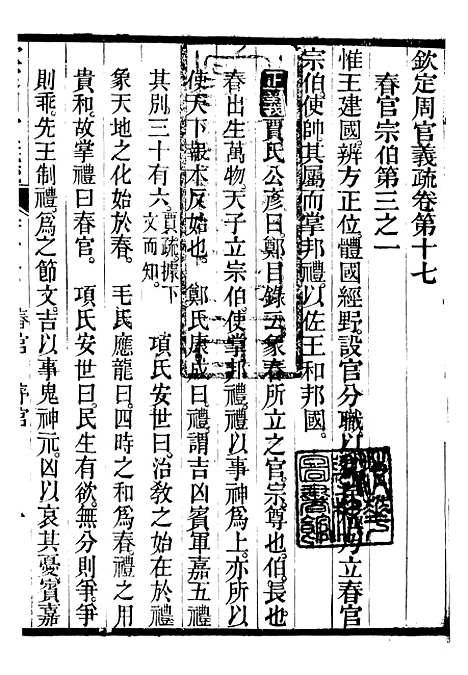 欽定周官義疏卷第十七
春官宗伯第三之一
惟王建國辨方正位體國經野設官分職以乃立春官
宗伯使帥其屬而掌邦禮以佐王和邦國
正義賈氏公彥曰鄭目錄云象春所立之官宗尊也伯長也
春出生萬物天子立宗伯使掌邦禮以事神爲上亦所以
使天下報本反始也 鄭氏康成曰禮謂吉凶賓軍嘉五禮
其別三十有六賈疏據下文而知 項氏安世曰治敎之始在於禮
象天地之化始於春 毛氏應龍曰四時之和爲春禮之用
貴和故掌禮曰春官 項氏安世曰民生有欲無分則爭爭
則乖先王制禮爲之節文吉以事鬼神示凶以哀其憂賓嘉
春官